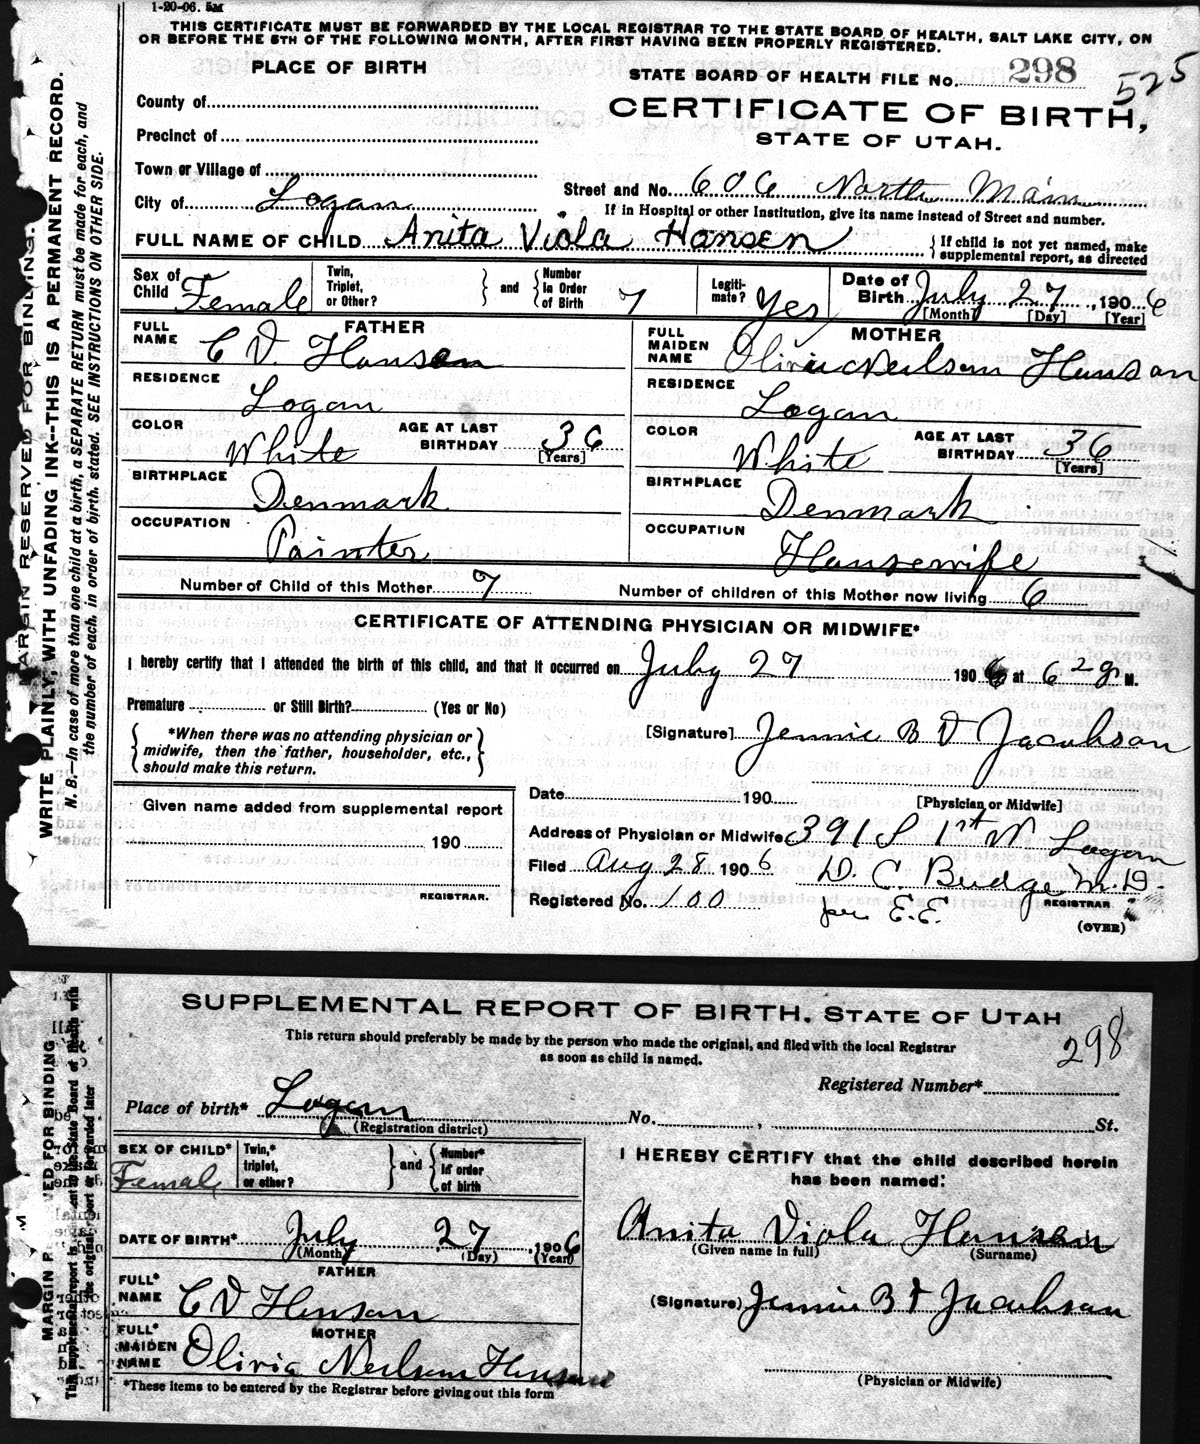 1-20-06. 5M
THIS CERTIFICATE MUST BE FORWARDED BY THE LOCAL REGISTRAR TO THE STATE BOARD OF HEALTH, SALT LAKE CITY, ON
OR BEFORE THE 5TH OF THE FOLLOWING MONTH, AFTER FIRST HAVING BEEN PROPERLY REGISTERED.
PLACE OF BIRTH
STATE BOARD OF HEALTH FILE No. 298 525
County of
CERTIFICATE OF BIRTH,
Precinct of
STATE OF UTAH.
Town or Village of
Street and No. 606 North Main
City of Logan
If in Hospital or other Institution, give its name instead of Street and number.
FULL NAME OF CHILD Anita Viola Hansen
{ If child is not yet named, make
supplemental report, as directed
Sex of Child Female
Twin, Triplet, or Other?
} and { Number In Order of Birth 7
Legiti-mate? Yes
Date of Birth July 27, 1906
[Month] [Day] [Year]
FATHER
FULL NAME C V. Hansen
RESIDENCE Logan
COLOR White
AGE AT LAST BIRTHDAY 36 [Years]
BIRTHPLACE Denmark
OCCUPATION Painter
MOTHER
FULL MAIDEN NAME Olivia Neilsen Hanson
RESIDENCE Logan
COLOR White
AGE AT LAST BIRTHDAY 36 [Years]
BIRTHPLACE Denmark
OCCUPATION Housewife
Number of Child of this Mother 7
Number of children of this Mother now living 6
CERTIFICATE OF ATTENDING PHYSICIAN OR MIDWIFE*
I hereby certify that I attended the birth of this child, and that it occurred on July 27 1906 at 6 M.
Premature or Still Birth? (Yes or No)
{ *When there was no attending physician or
midwife, then the father, householder, etc.,
should make this return. }
[Signature] Jennie B D Jacobson
Date 190
[Physician or Midwife]
Given name added from supplemental report
190
REGISTRAR.
Address of Physician or Midwife 391 S 1st W Logan
Filed Aug 28 1906
D. C. Budge M.D.
REGISTRAR
Registered No. 100
per E.E.
(OVER)
MARGIN RESERVED FOR BINDING.
WRITE PLAINLY, WITH UNFADING INK--THIS IS A PERMANENT RECORD.
N. B.--In case of more than one child at a birth, a SEPARATE RETURN must be made for each, and
the number of each, in order of birth, stated. SEE INSTRUCTIONS ON OTHER SIDE.
SUPPLEMENTAL REPORT OF BIRTH. STATE OF UTAH
This return should preferably be made by the person who made the original, and filed with the local Registrar
as soon as child is named.
298
Registered Number*
Place of birth* Logan No. , St.
(Registration district)
SEX OF CHILD* Female
Twin,* triplet, or other?
} and { Number* in order of birth
I HEREBY CERTIFY that the child described herein
has been named:
DATE OF BIRTH* July 27, 1906
(Month) (Day) (Year)
Anita Viola Hansen
(Given name in full) (Surname)
FATHER
FULL* NAME C V Hansen
(Signature) Jennie B D Jacobson
MOTHER
FULL* MAIDEN NAME Olivia Neilsen Hansen
(Physician or Midwife)
*These items to be entered by the Registrar before giving out this form